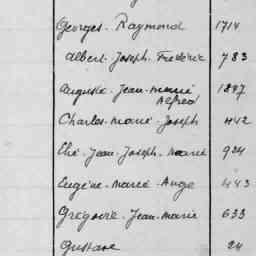 Georges. Raymond 1714
Albert. Joseph. Frédéric 783
Auguste. Jean-Marie 1887
Alfred
Charles-Marie. Joseph 442
Elie. Jean. Joseph. Marie 924
Eugène. Marie. Ange 443
Grégoire. Jean-Marie 633
Gustave 24